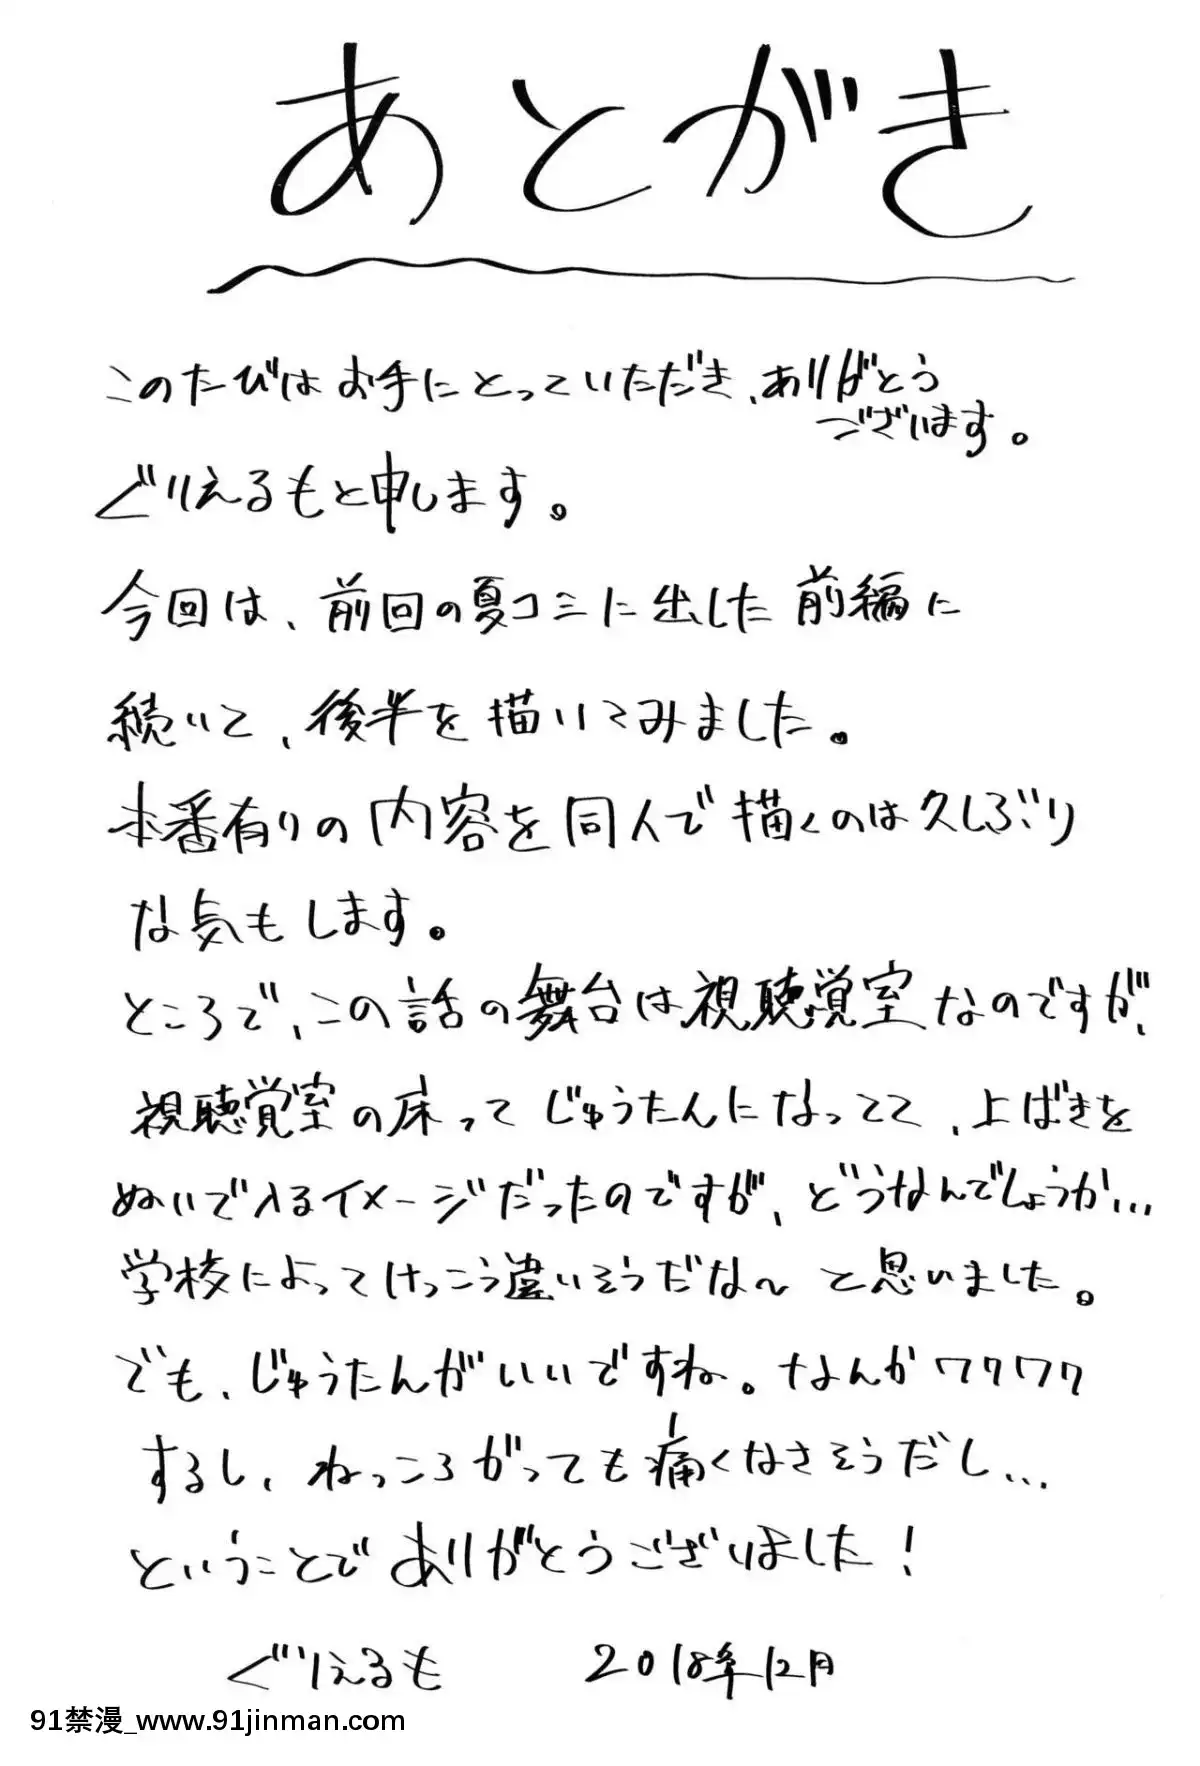 あとがき
このたびはお手にとっていただき、ありがとう
ございます。
ぐりえるもと申します。
今回は、前回の夏コミに出した前編に
続いて、後半を描いてみました。
本番有りの内容を同人で描くのは久しぶり
な気もします。
ところで、この話の舞台は視聴覚室なのですが、
視聴覚室の床ってじゅうたんになってて、上ばきを
ぬいで入るイメージだったのですが、どうなんでしょうか…
学校によってけっこう違いそうだな~と思いました。
でも、じゅうたんがいいですね。なんかワクワク
するし、ねっころがっても痛くなさそうだし…
ということでありがとうございました!
ぐりえるも 2018年12月
91禁漫_www.91jinman.com